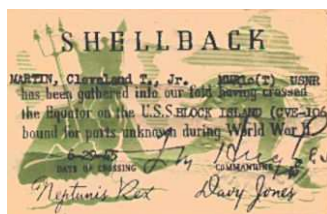 SHELLBACK
MARTIN, Cleveland T., Jr. USNR
has been gathered into our fold having crossed
the Equator on the U.S.S. BLOCK ISLAND (CVE-106
bound for ports unknown during World War II
DATE OF CROSSING COMMANDING
Neptunis Rex Davy Jones